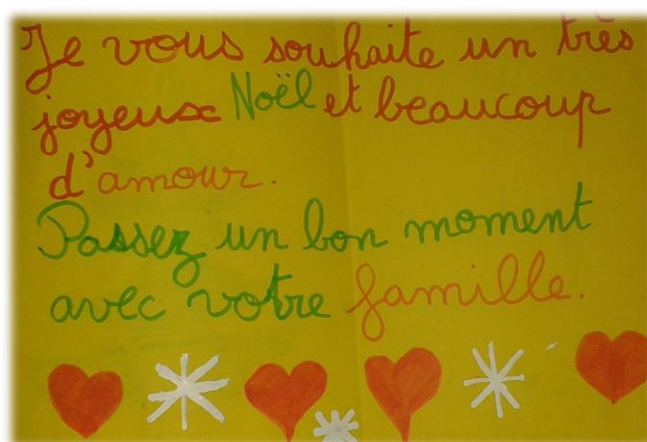 Je vous souhaite un très
joyeux Noël et beaucoup
d'amour.
Passez un bon moment
avec votre famille.